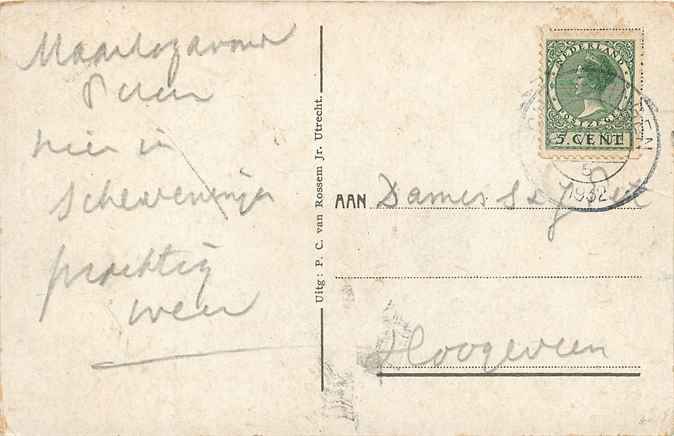 Maandagavond
8 uur
hier in
Scheveningen
prachtig
weer
Uitg: P. C. van Rossem Jr. Utrecht.
NEDERLAND
POSTZEGEL
5 CENT
5
1932
AAN Dames S
Hoogeveen